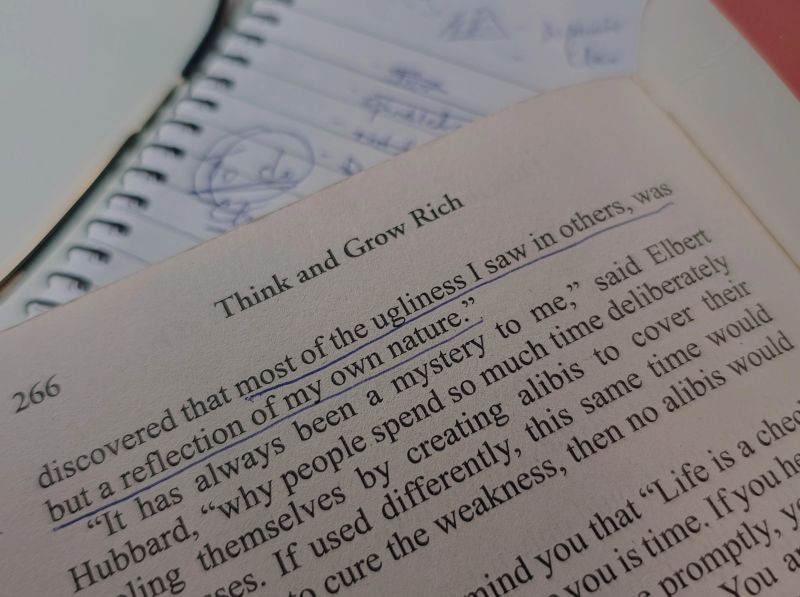 Think and Grow Rich
266
discovered that most of the ugliness I saw in others, was
but a reflection of my own nature.”
“It has always been a mystery to me,” said Elbert
Hubbard, “why people spend so much time deliberately
themselves by creating alibis to cover their
If used differently, this same time would
cure the weakness, then no alibis would
mind you that “Life is a
you is time. If you
promptly,
You